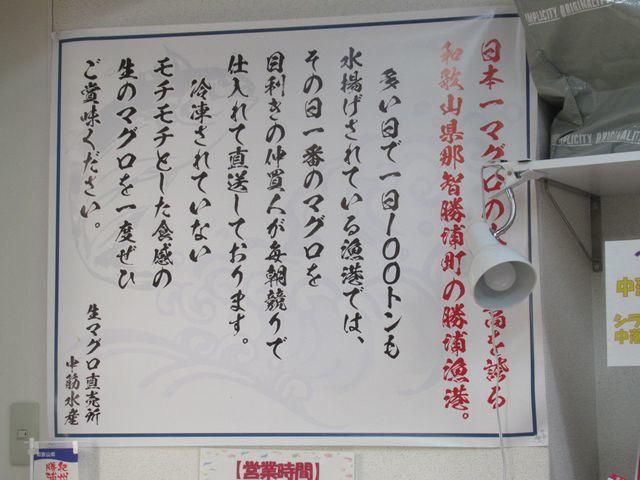 日本一マグロの水揚高を誇る
和歌山県那智勝浦町の勝浦漁港。
多い日で一日100トンも
水揚げされている漁港では、
その日一番のマグロを
目利きの仲買人が毎朝競りで
仕入れて直送しております。
冷凍されていない
モチモチとした食感の
生のマグロを一度ぜひ
ご賞味ください。
生マグロ直売所
中筋水産
IMPLICITY ORIGINALITY
SIMPLICITY ORIGINALIT
中落
シラ
中落
【営業時間】
和歌山県